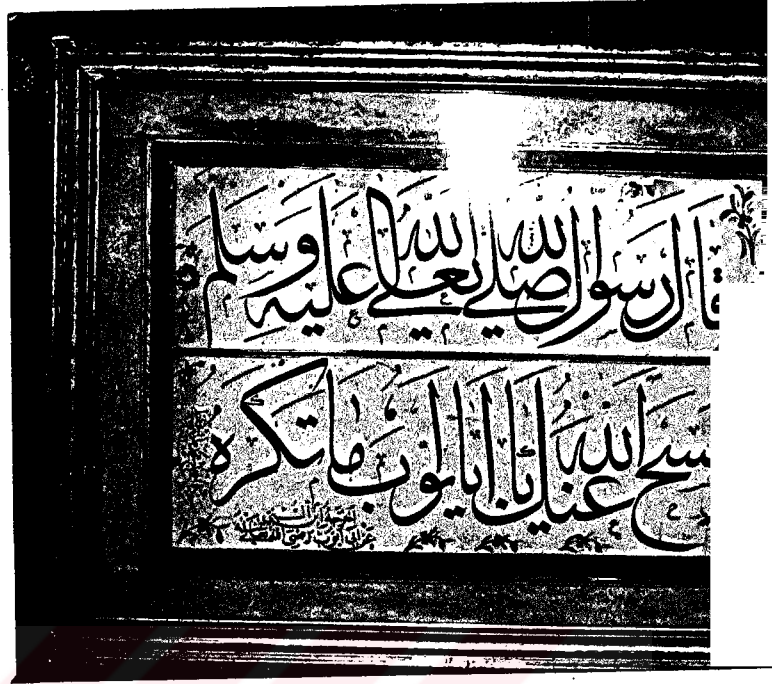 قال رسول الله صلى الله تعالى عليه وسلم
مسح الله عنك يا ابا ايوب ما تكره